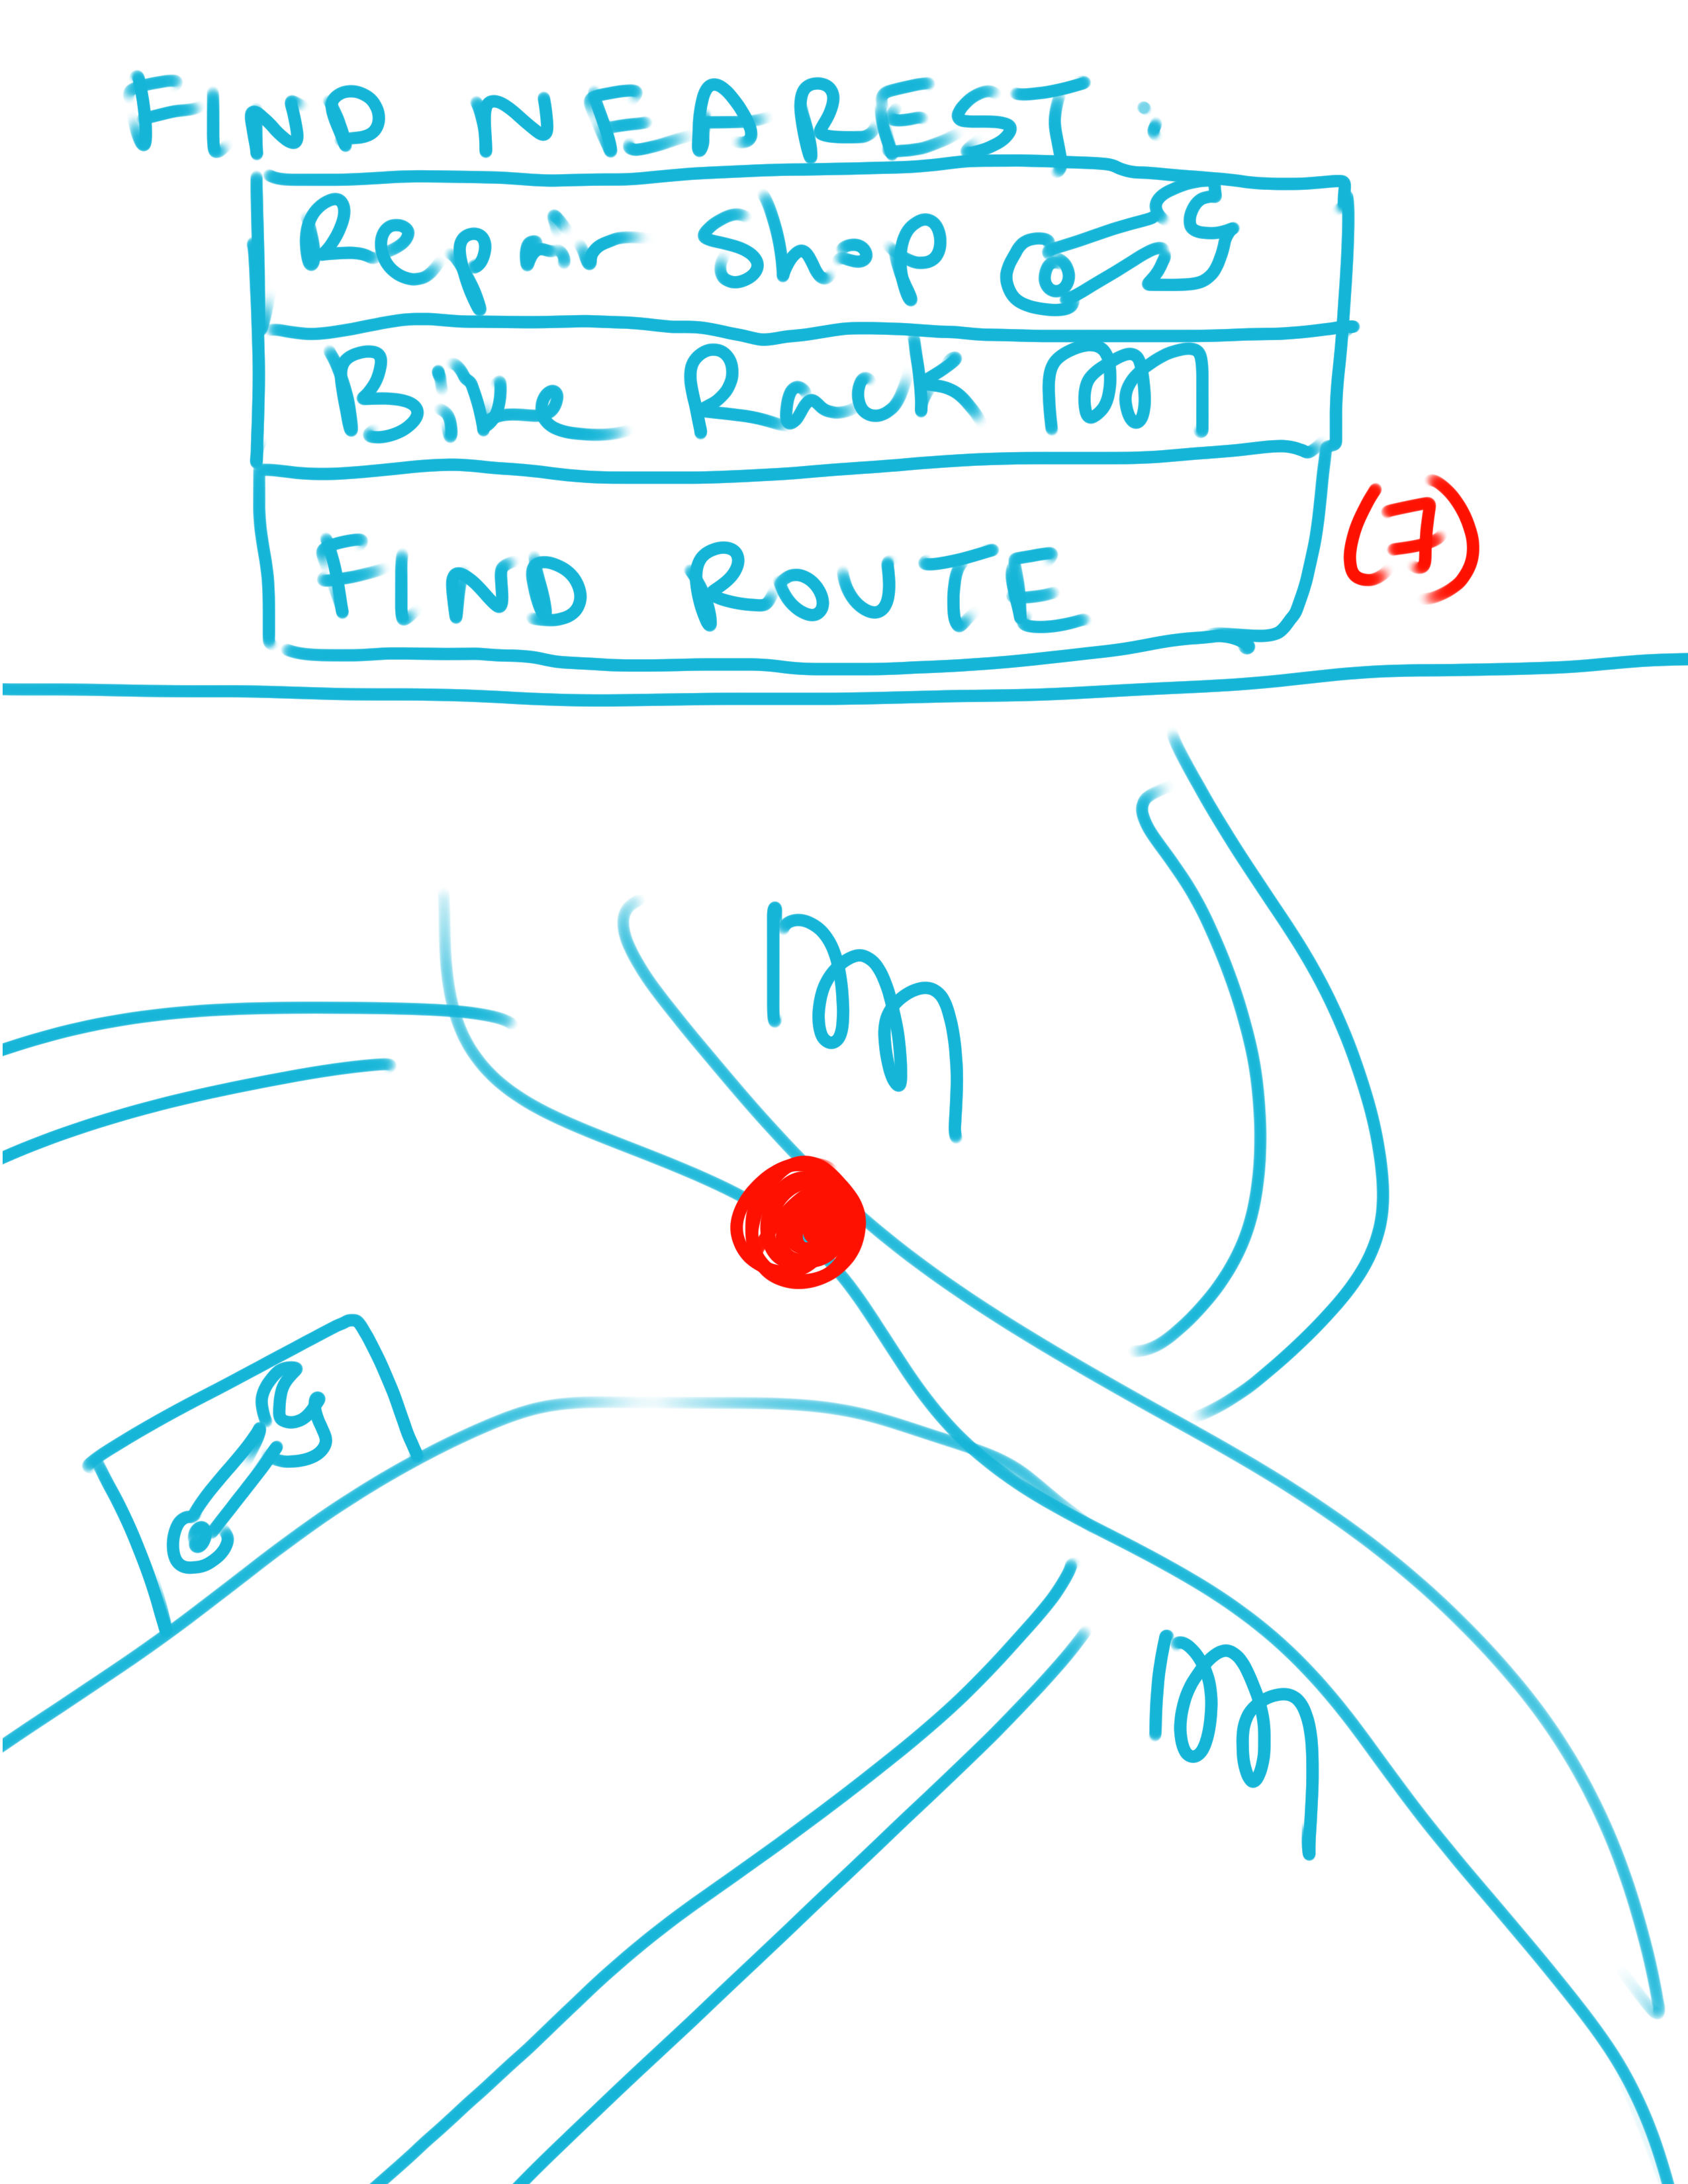 FIND NEAREST:
Repair Shop
Bike Rack
FIND ROUTE
(7)